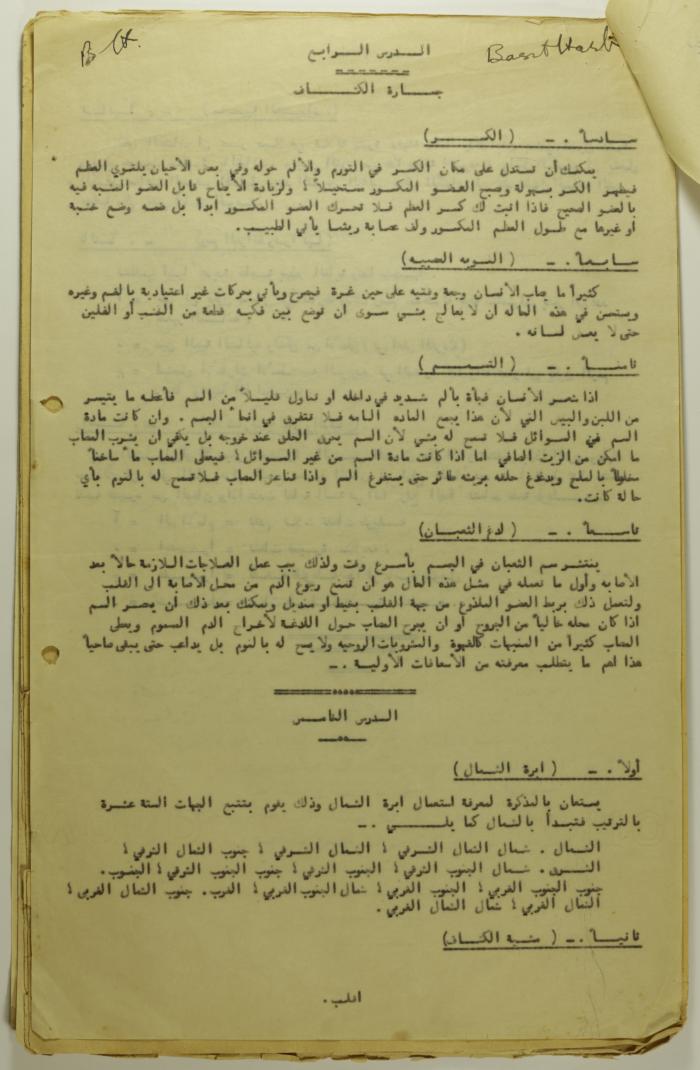 B H.
Basit Harb
الدرس الرابع
جدارة الكشاف
سادساً . ـ ( الكسر )
يمكنك أن تستدل على مكان الكسر في التورم والألم حوله وفي بعض الأحيان يلتوي العظم
فيظهر الكسر بسهولة وصبح العضو المكسور مستحيلاً ؛ ولزيادة الأيضاح قابل العضو المشبه فيه
بالعضو الصحيح فاذا اثبت لك كسر العظم فلا تحرك العضو المكسور ابداً بل ضعه وضع خشبة
أو غيرها مع طول العظم المكسور ولف عصابة ريثما يأتي الطبيب .
سابعاً . ـ ( النوبه العصبيه )
كثيراً ما يصاب الأنسان وجعة وفتيه على حين غرة فيصرخ ويأتي بحركات غير اعتيادية بالفم وغيره
ويستحسن في هذه الحاله ان لا يعالج بشي سوى ان توضع بين فكيه قطعة من الخشب أو الفلين
حتى لا يعض لسانه .
ثامناً . ـ ( التسمم )
اذا شعر الأنسان فجأة بألم شديد في داخله او تناول قليلاً من السم فأعطه ما يتيسر
من اللبن والبيض الني لأن هذا يجمع الماده السامه فلا تتفرق في انحاء الجسم . وان كانت مادة
السم من السوائل فلا تسمح له بشي لأن السم يحرق الحلق عند خروجه بل يكفي ان يشرب المصاب
ما امكن من الزيت الصافي اما اذا كانت مادة السم من غير السوائل ؛ فيعطى المصاب ماءً ساخناً
مخلوطاً بالملح ويدغدغ حلقه بريشه طائر حتى يستفرغ السم واذا تناعز المصاب فلا تسمح له بالنوم بأي
حالة كانت .
تاسعاً . ـ ( لدغ الثعبان )
ينتشر سم الثعبان في الجسم بأسرع وقت ولذلك يجب عمل العلاجات اللازمة حالاً بعد
الأصابه وأول ما تعمله في مثل هذه الحال هو ان تمنع رجوع الدم من محل الأصابة الى القلب
ولتعمل ذلك بربط العضو الملدوغ من جهة القلب بخيط او منديل ويمكنك بعد ذلك أن يمصر السم
اذا كان محله خالياً من الجروح أو ان يجرح المصاب حول اللدغة لأخراج الدم المسموم ويعطى
المصاب كثيراً من المنبهات كالقهوة والمشروبات الروحيه ولا يسمح له بالنوم بل يداعب حتى يبقى صاحياً
هذا اهم ما يتطلب معرفته من الأسعافات الأولية . ـ
الدرس الخامس
أولاً . ـ ( ابرة الشمال )
يستعان بالمذكرة لمعرفة استعمال ابرة الشمال وذلك يقوم بتتبع الجهات الستة عشرة
بالترتيب فتبدأ بالشمال كما يلـــي . ـ
الشمال . شمال الشمال الشرقي ؛ الشمال الشرقي ؛ جنوب الشمال الشرقي ؛
الشرق . شمال الجنوب الشرقي ؛ الجنوب الشرقي ؛ جنوب الجنوب الشرقي ؛ الجنوب .
جنوب الجنوب الغربي ؛ الجنوب الغربي ؛ شمال الجنوب الغربي ؛ الغرب . جنوب الشمال الغربي ؛
الشمال الغربي ؛ شمال الشمال الغربي .
ثانياً . ـ ( مشية الكشاف )
اقلب .